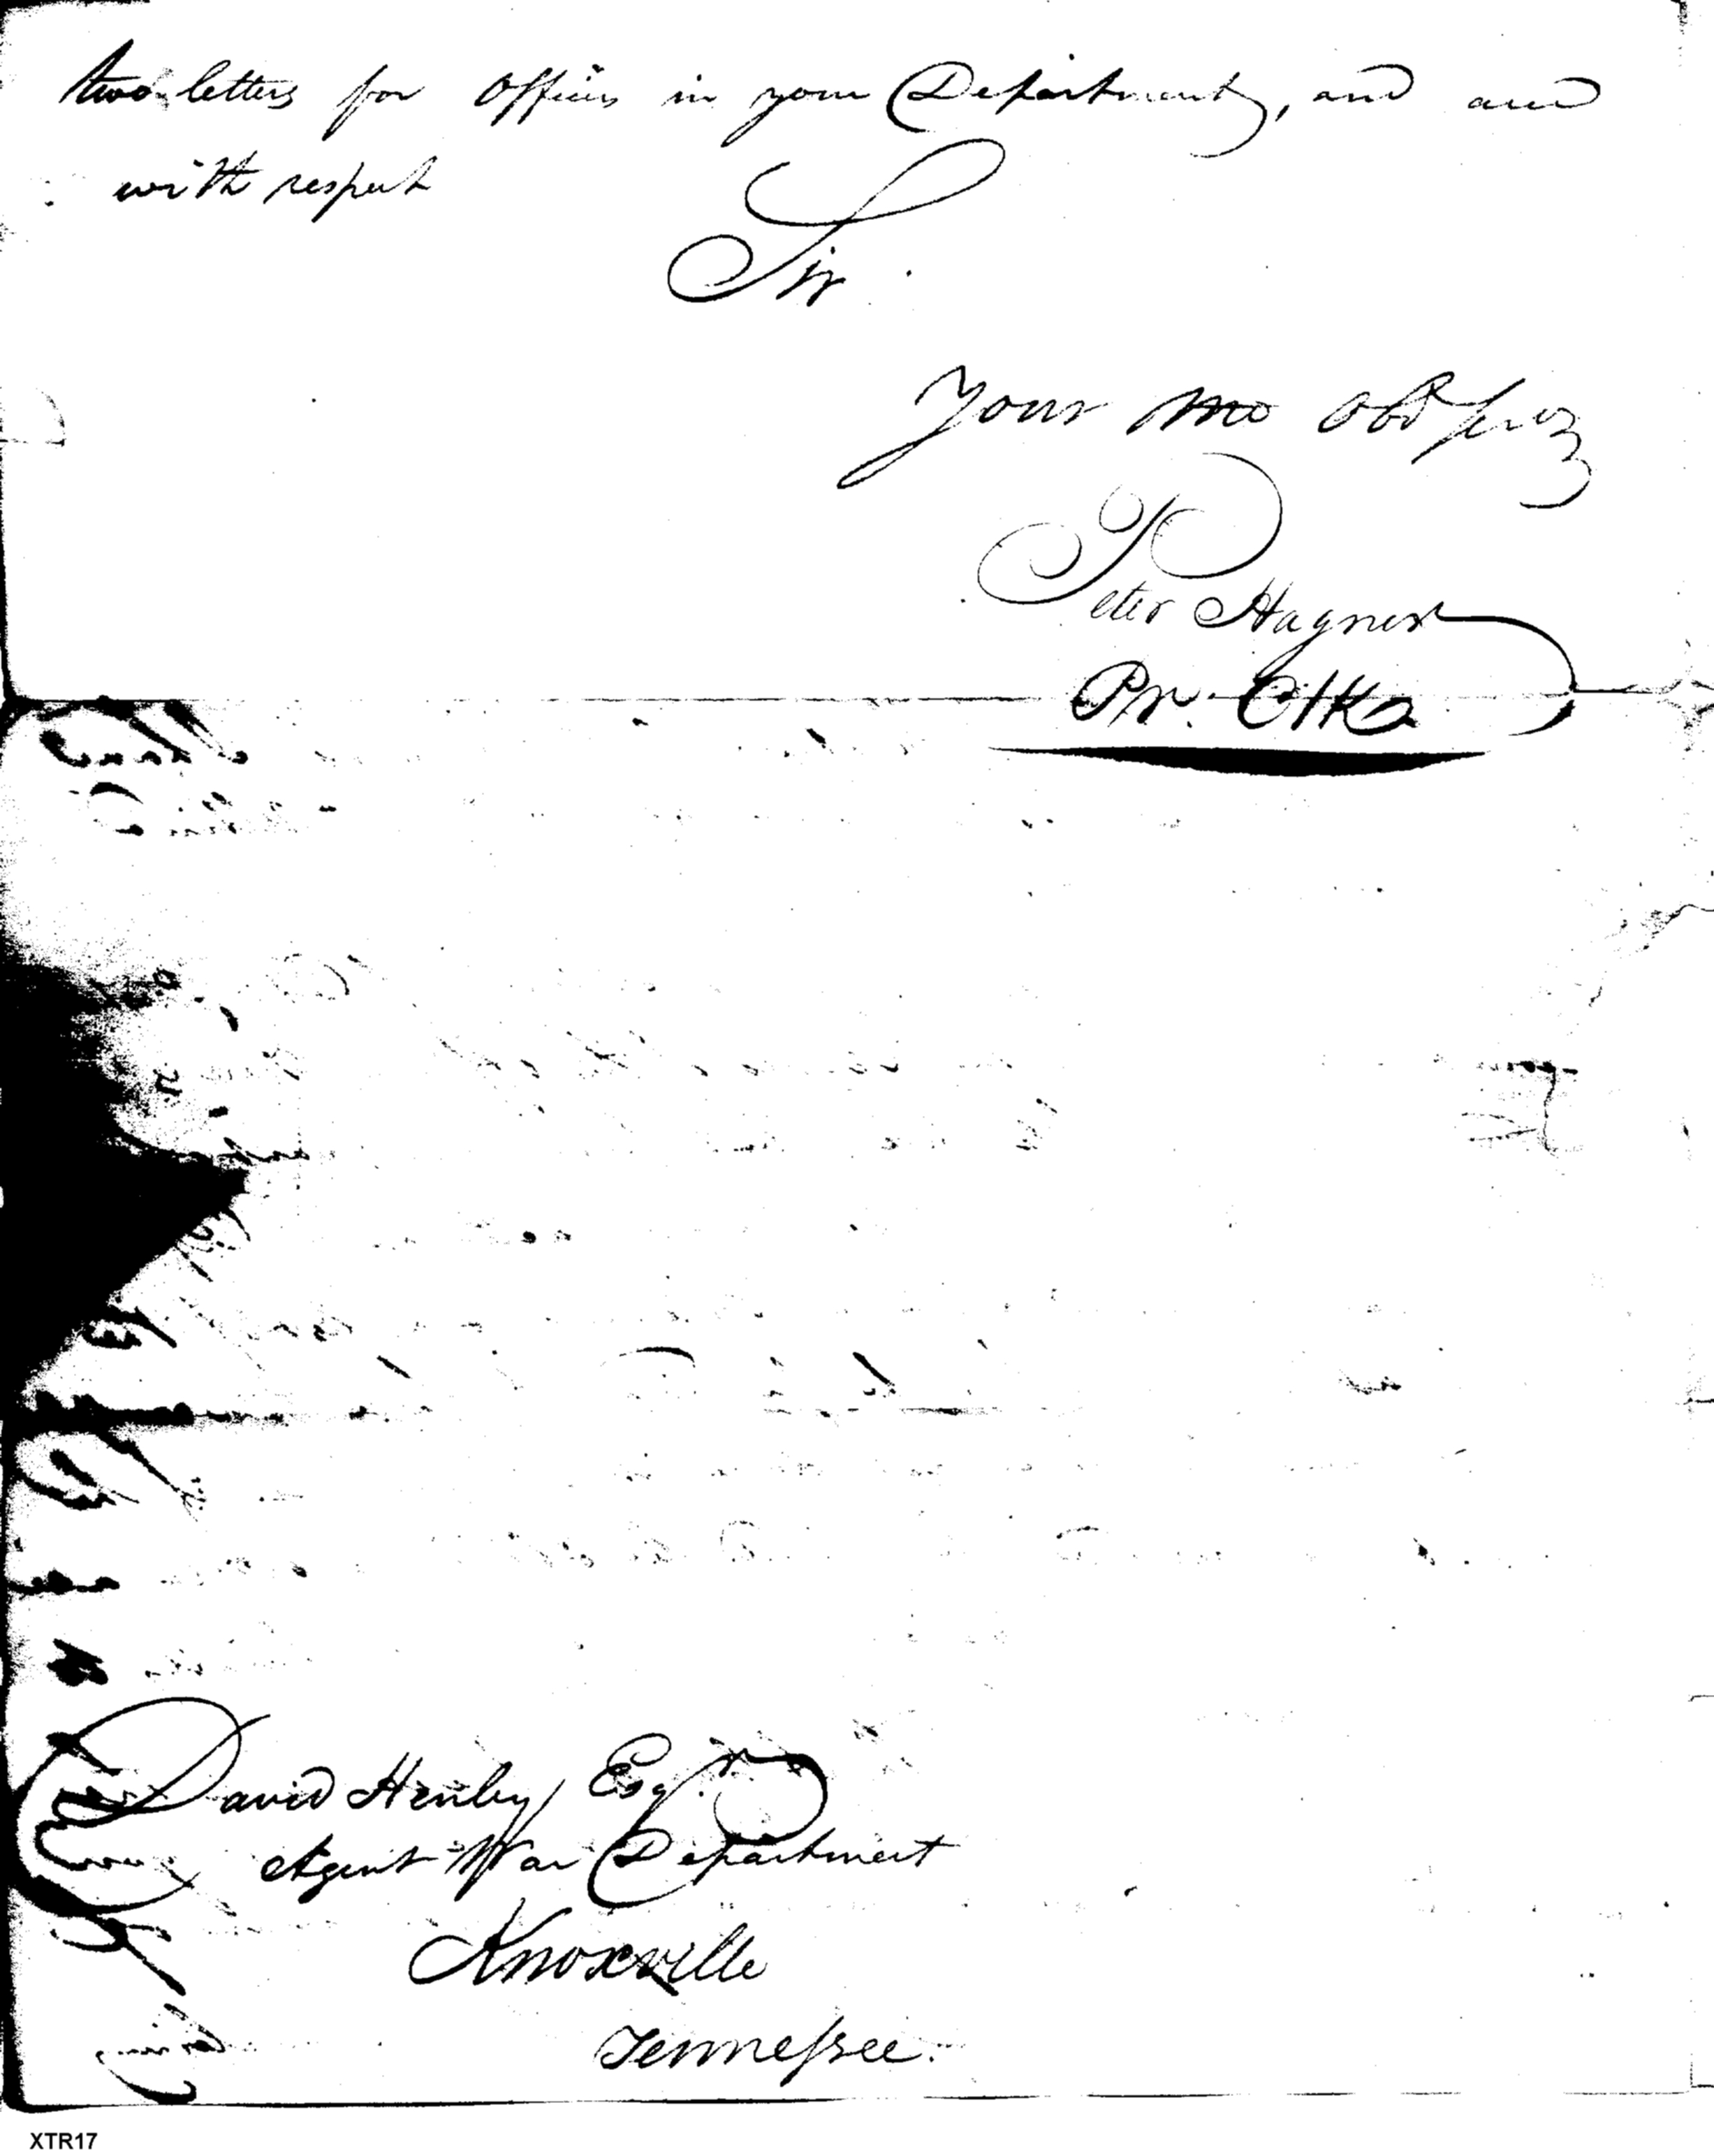 two letters for Officers in your Department, and am
with respect
Sir
Your mo Obd Serv
Peter Hagner
Pr. Clk
David Henley Esqr.
Agent War Department
Knoxville
Tennessee.
XTR17